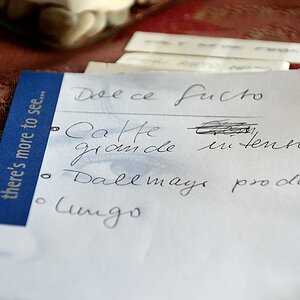 there's more to see...
Dolce Gusto
Caffe
grande intens
Dallmayr prod
Lungo